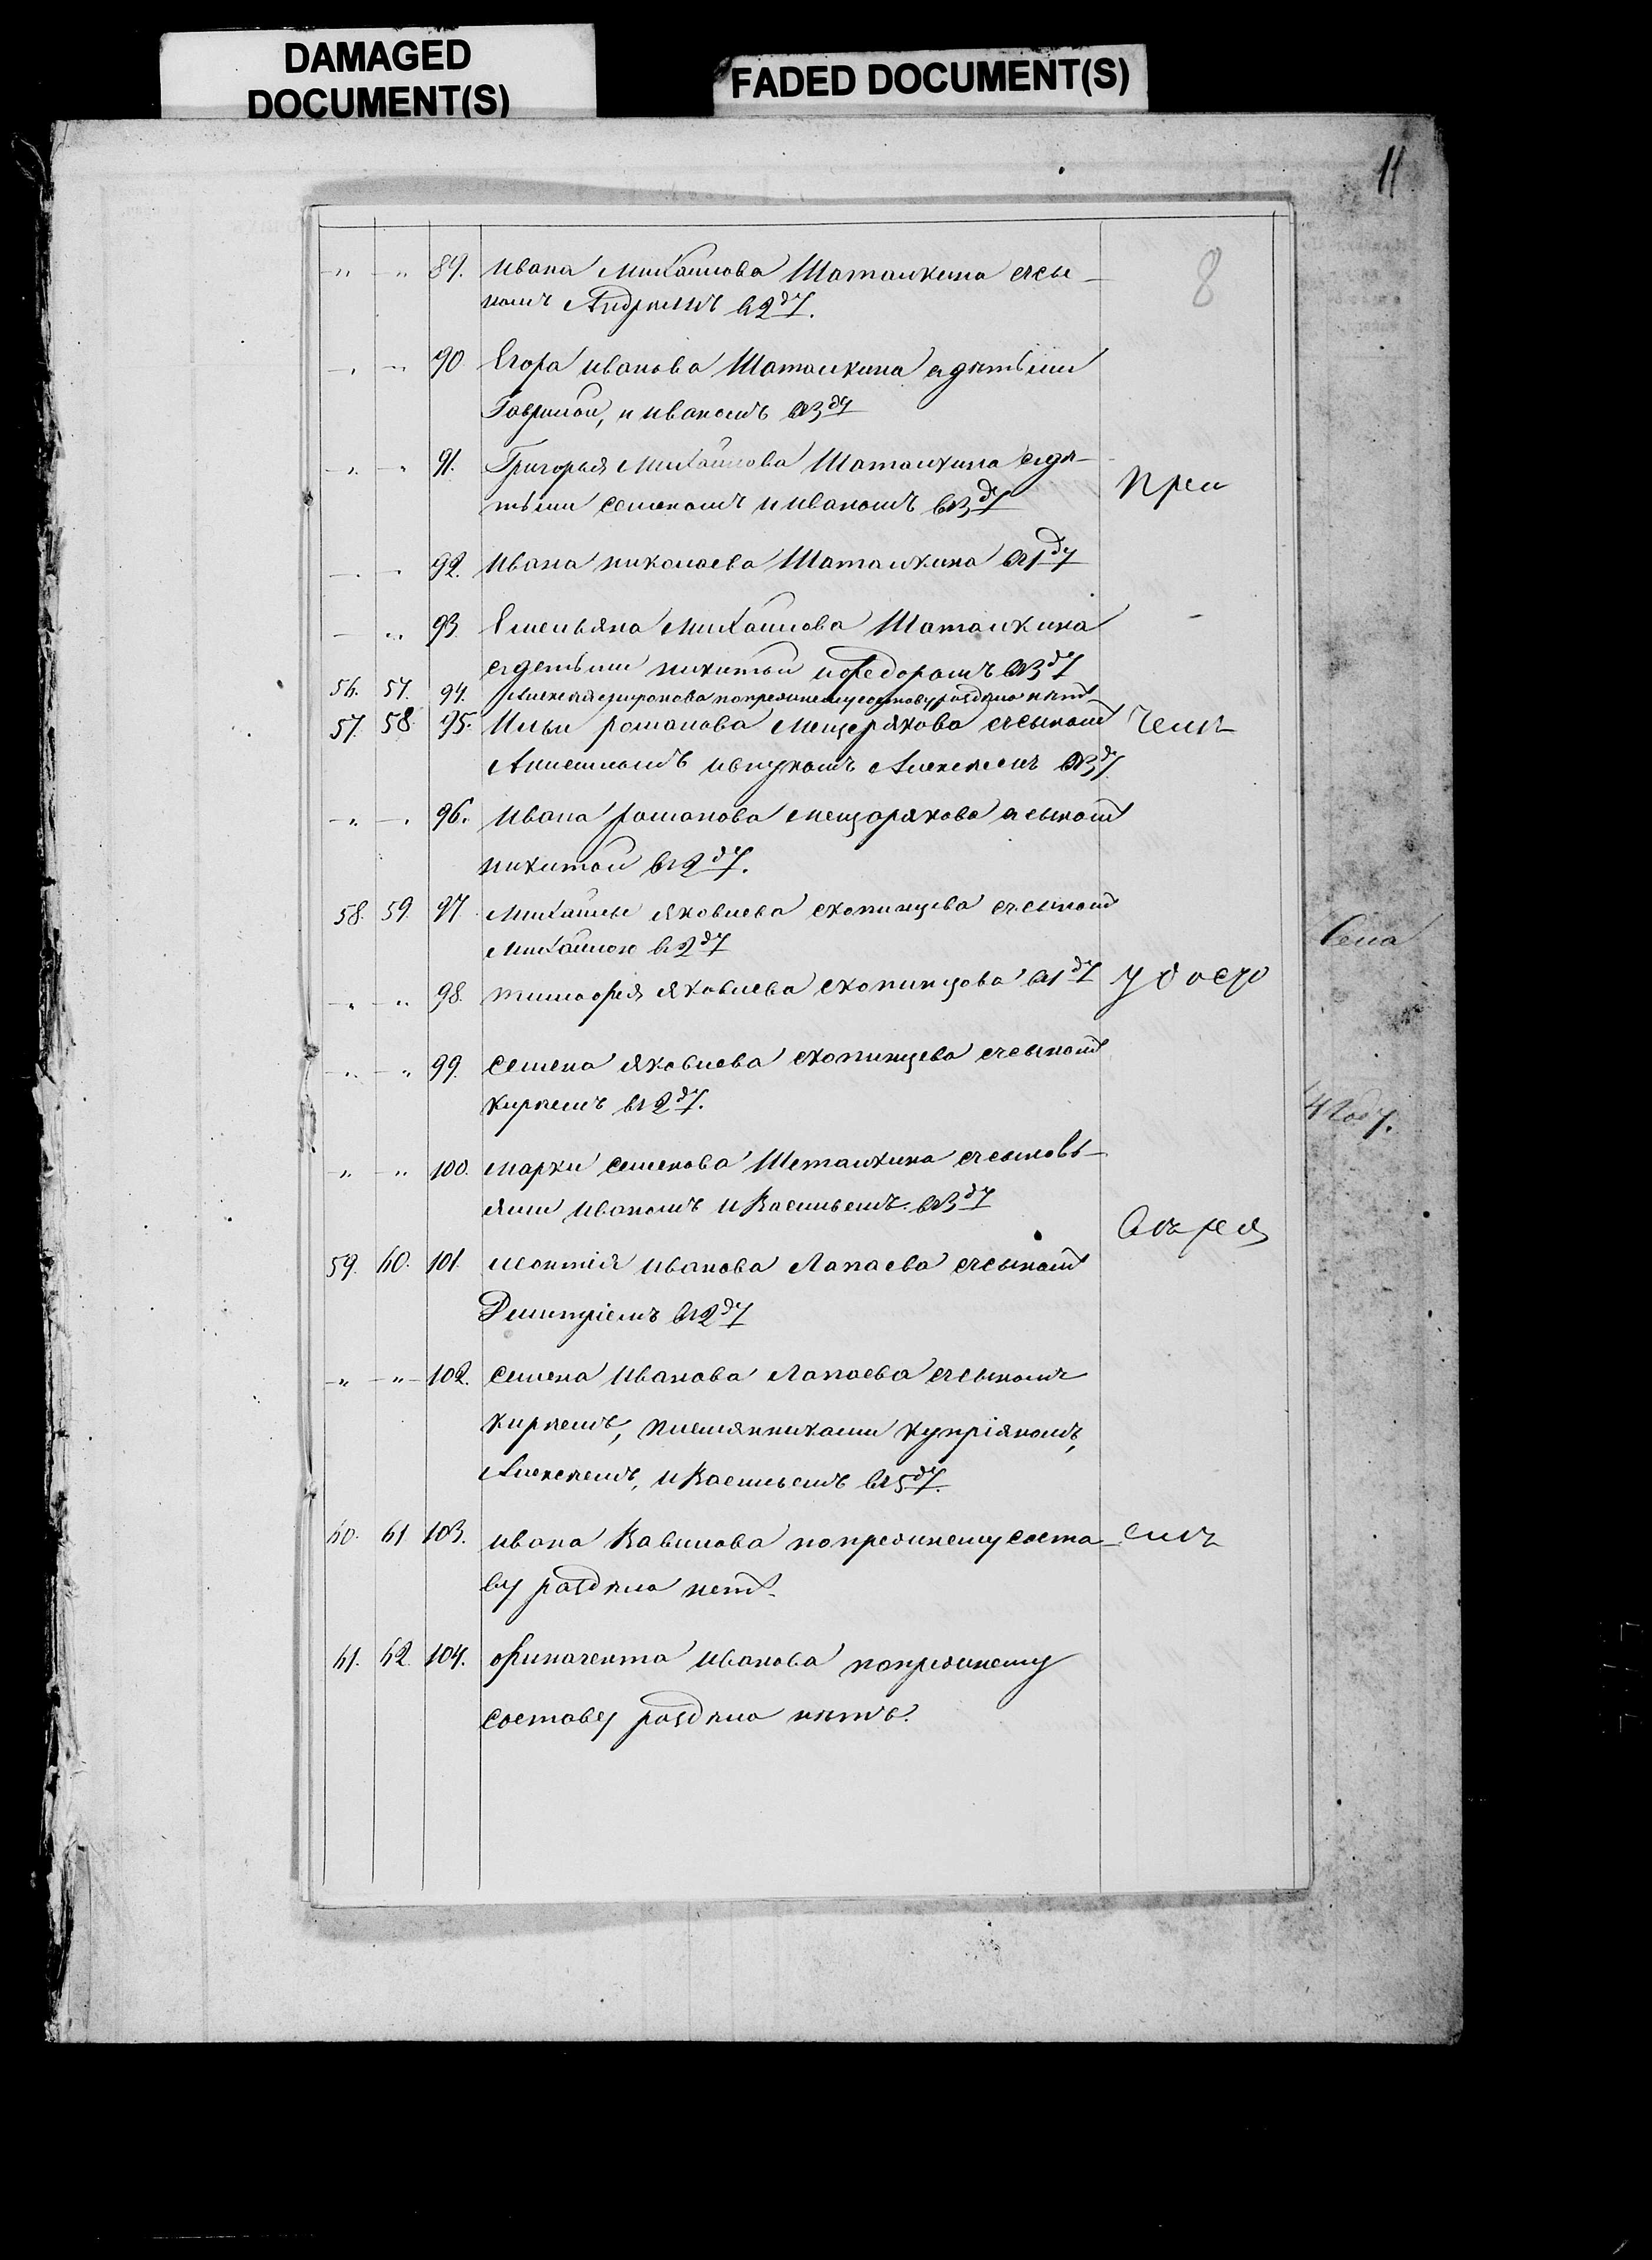 DAMAGED
DOCUMENT(S)
FADED DOCUMENT(S)
11
8
-"- -"- 89. Ивана Михайлова Шаталкина съ сы-
номъ Андреемъ въ 2 ду.
-"- -"- 90 Егора Иванова Шаталкина сдѣтьми
Гаврилой, и Иваномъ въ 3 ду
-"- -"- 91. Григорья Михайлова Шаталкина сдѣ-
тьми Семеномъ и Иваномъ въ 3 ду
При
-"- -"- 92. Ивана Николаева Шаталкина въ 1 ду
-"- -"- 93. Емельяна Михайлова Шаталкина
сдетьми Никитой и Федоромъ въ 3 ду
56. 57. 94. Алексея Миронова попрежнему составу раздѣла нѣтъ
57. 58. 95. Ильи Романова Мещерякова съ сыномъ
чемъ
Анисимомъ и внукомъ Алексеемъ въ 3 ду.
-"- -"- 96. Ивана Романова Мещарякова съ сыномъ
Никитой въ 2 ду.
58. 59. 97. Михаилы Яковлева Скопинцева съ сыномъ
Михайлою въ 2 ду
-"- -"- 98. Тимофея Яковлева Скопинцова въ 1 ду
удосто
-"- -"- 99. Семена Яковлева Скопинцева съ сыномъ
Кирѣемъ въ 2 ду.
-"- -"- 100. Марки Семенова Шеталкина съ сыновь-
ями Иваномъ и Васильемъ въ 3 ду
59. 60. 101. Леонтія Иванова Лапаева съ сыномъ
Дмитріемъ въ 2 ду
-"- -"- 102. Семена Иванова Лапаева съ сыномъ
Кирѣемъ, племянниками Купріяномъ,
Алексѣемъ, и Васильемъ въ 5 ду.
60. 61 103. Ивана Вавилова попрежнему соста-
ву раздѣла нетъ.
61. 62. 104. Финагента Иванова попрежнему
составу раздѣла нѣтъ.